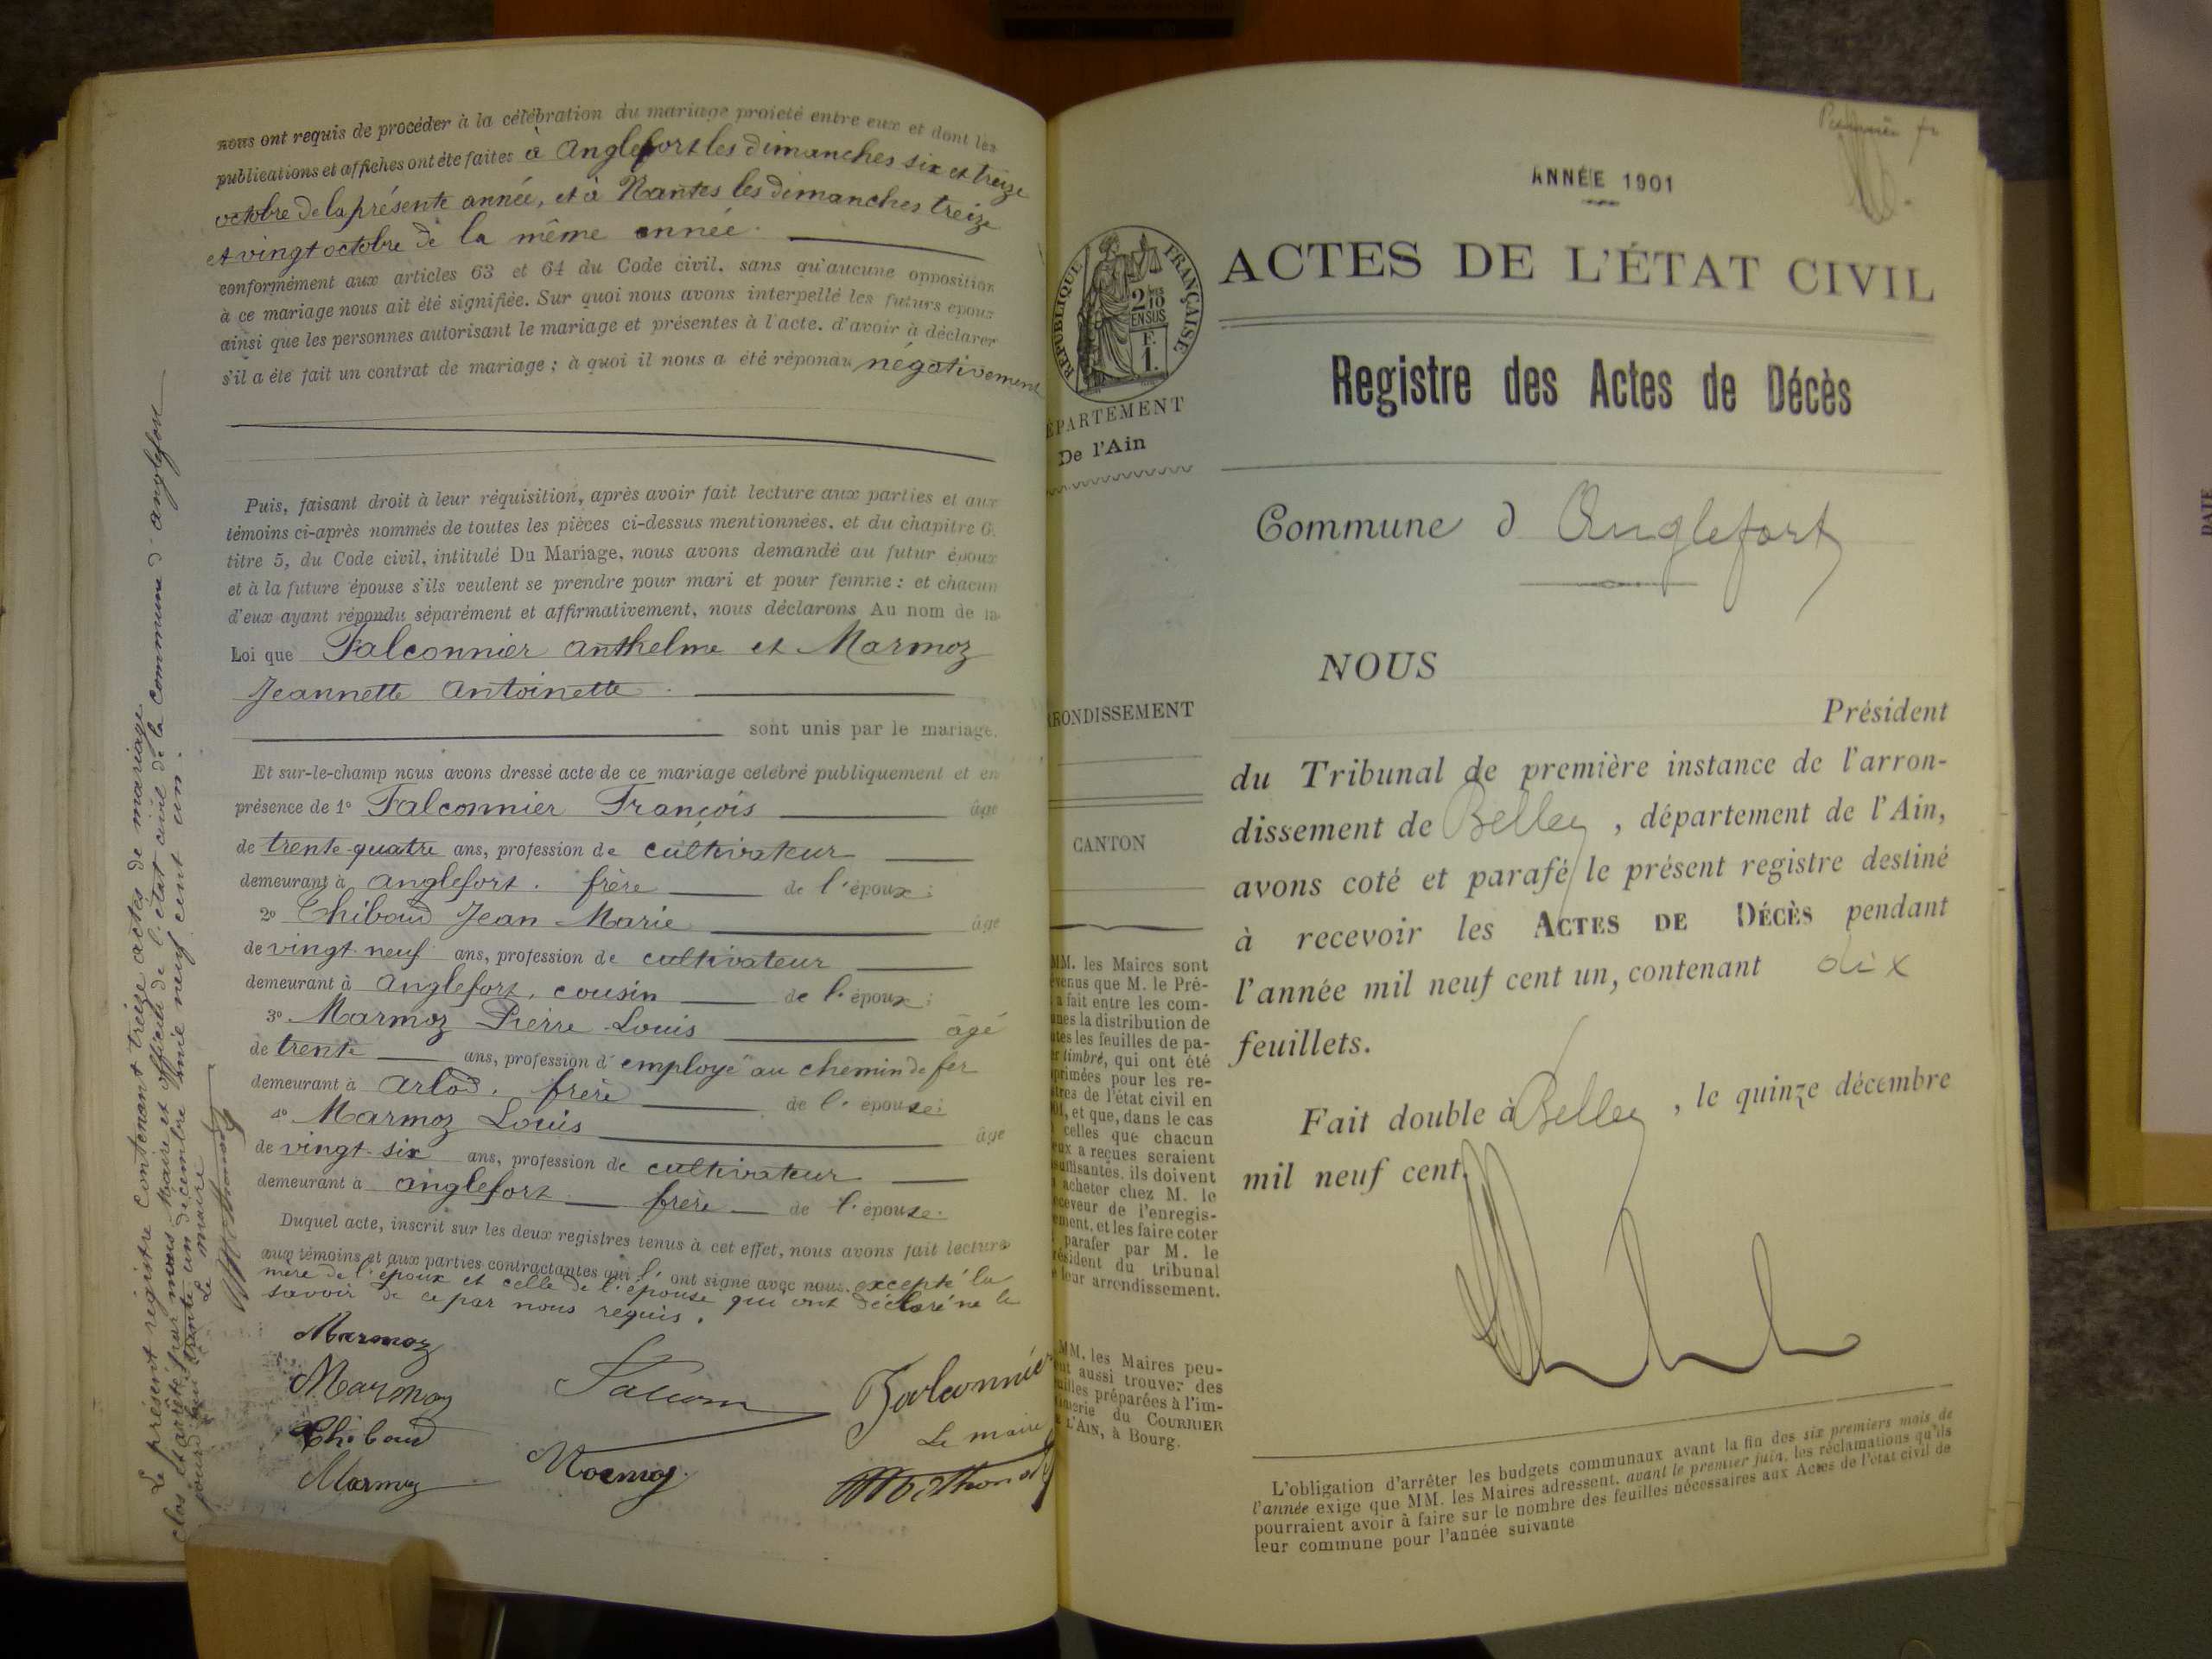 nous ont requis de procéder à la célébration du mariage projeté entre eux et dont les
publications et affiches ont été faites à Anglefort les dimanches six et treize
octobre de la présente année, et à Nantes les dimanches treize
et vingt octobre de la même année.
conformément aux articles 63 et 64 du Code civil, sans qu'aucune opposition
à ce mariage nous ait été signifiée. Sur quoi nous avons interpellé les futurs epoux
ainsi que les personnes autorisant le mariage et présentes à l'acte, d'avoir à déclarer
s'il a été fait un contrat de mariage ; à quoi il nous a été répondu négativement
Puis, faisant droit à leur réquisition, après avoir fait lecture aux parties et aux
témoins ci-après nommés de toutes les pièces ci-dessus mentionnées, et du chapitre 6,
titre 5, du Code civil, intitulé Du Mariage, nous avons demandé au futur époux
et à la future épouse s'ils veulent se prendre pour mari et pour femme : et chacun
d'eux ayant répondu séparément et affirmativement, nous déclarons Au nom de la
Loi que Falconnier Anthelme et Marmoz
Jeannette Antoinette.
sont unis par le mariage.
Et sur-le-champ nous avons dressé acte de ce mariage célébré publiquement et en
présence de 1° Falconnier François âgé
de trente-quatre ans, profession de cultivateur
demeurant à Anglefort. frère de l'époux ;
2° Thibaud Jean-Marie âgé
de vingt-neuf ans, profession de cultivateur
demeurant à Anglefort, cousin de l'époux ;
3° Marmoz Pierre-Louis âgé
de trente ans, profession d'employé au chemin de fer
demeurant à Arlod. frère de l'épouse ;
4° Marmoz Louis âgé
de vingt-six ans, profession de cultivateur
demeurant à Anglefort frère de l'épouse.
Duquel acte, inscrit sur les deux registres tenus à cet effet, nous avons fait lecture
aux témoins et aux parties contractantes qui l'ont signé avec nous. excepté la
mère de l'époux et celle de l'épouse qui ont déclaré ne le
savoir de ce par nous requis.
Marmoz
Marmoz
Thibaud
Marmoz
Marmoz
Falconnier
Le maire
Le présent registre contenant treize actes de mariage
clos et arrêté par nous Maire et officier de l'état civil de la commune d'Anglefort
trente un décembre mil neuf cent un.
Le maire
ANNÉE 1901
ACTES DE L'ÉTAT CIVIL
RÉPUBLIQUE FRANÇAISE
2/10 EN SUS
F. 1.
Registre des Actes de Décès
ÉPARTEMENT
De l'Ain
Commune d Anglefort
NOUS
RONDISSEMENT
Président
du Tribunal de première instance de l'arron-
dissement de Belley, département de l'Ain,
CANTON
avons coté et parafé le présent registre destiné
à recevoir les ACTES DE DÉCÈS pendant
l'année mil neuf cent un, contenant dix
feuillets.
Fait double à Belley, le quinze décembre
mil neuf cent.
MM. les Maires sont
évenus que M. le Pré-
a fait entre les com-
unes la distribution de
utes les feuilles de pa-
er timbré, qui ont été
primées pour les re-
tres de l'état civil en
01, et que, dans le cas
celles que chacun
eux a reçues seraient
suffisantes, ils doivent
acheter chez M. le
eceveur de l'enregis-
ement, et les faire coter
parafer par M. le
résident du tribunal
e leur arrondissement.
MM. les Maires peu-
nt aussi trouver des
uilles préparées à l'im-
imerie du COURRIER
L'AIN, à Bourg.
L'obligation d'arrêter les budgets communaux avant la fin des six premiers mois de
l'année exige que MM. les Maires adressent, avant le premier juin, les réclamations qu'ils
pourraient avoir à faire sur le nombre des feuilles nécessaires aux Actes de l'état civil de
leur commune pour l'année suivante
DATE